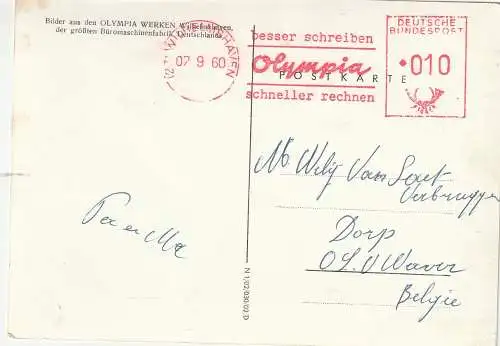 Bilder aus den OLYMPIA WERKEN, Wilhelmshaven,
der größten Büromaschinenfabrik Deutschlands
WILHELMSHAVEN
07 9 60
besser schreiben
Olympia
schneller rechnen
DEUTSCHE
BUNDESPOST
010
POSTKARTE
Van
Verbruggen
Dorp
O L V Waver
Belgie
Pa en Ma
N 1/02/030/02 D